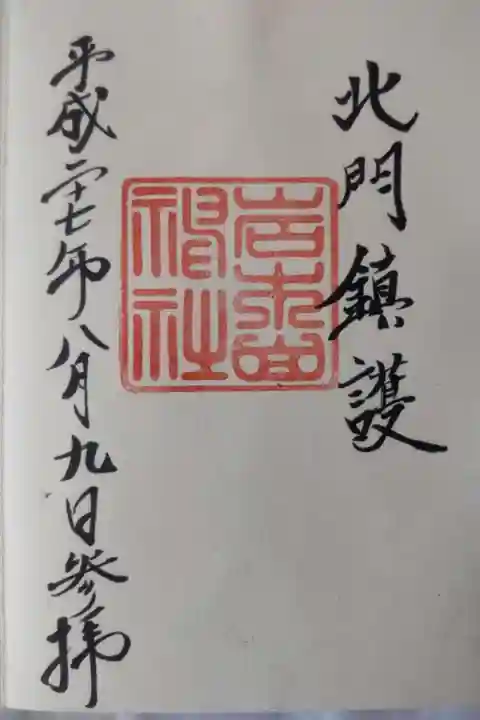 北門鎮護
岩木山
神社
平成二十七年八月九日参拝